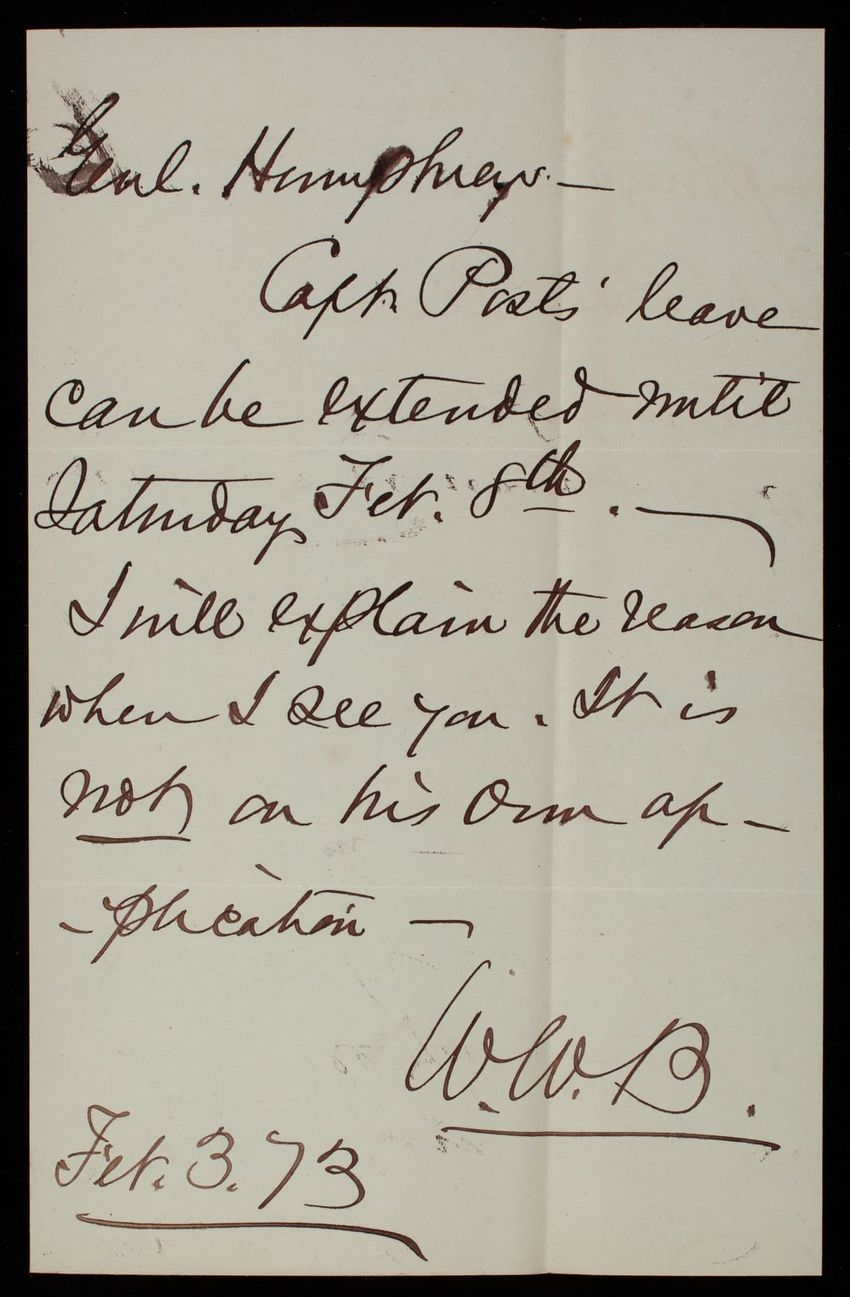 Genl. Humphreys —
Capt. Posts' leave
can be extended until
Saturday Feb. 8th. —
I will explain the reason
when I see you. It is
not on his own ap-
-plication —
W.W.B.
Feb. 3. 73